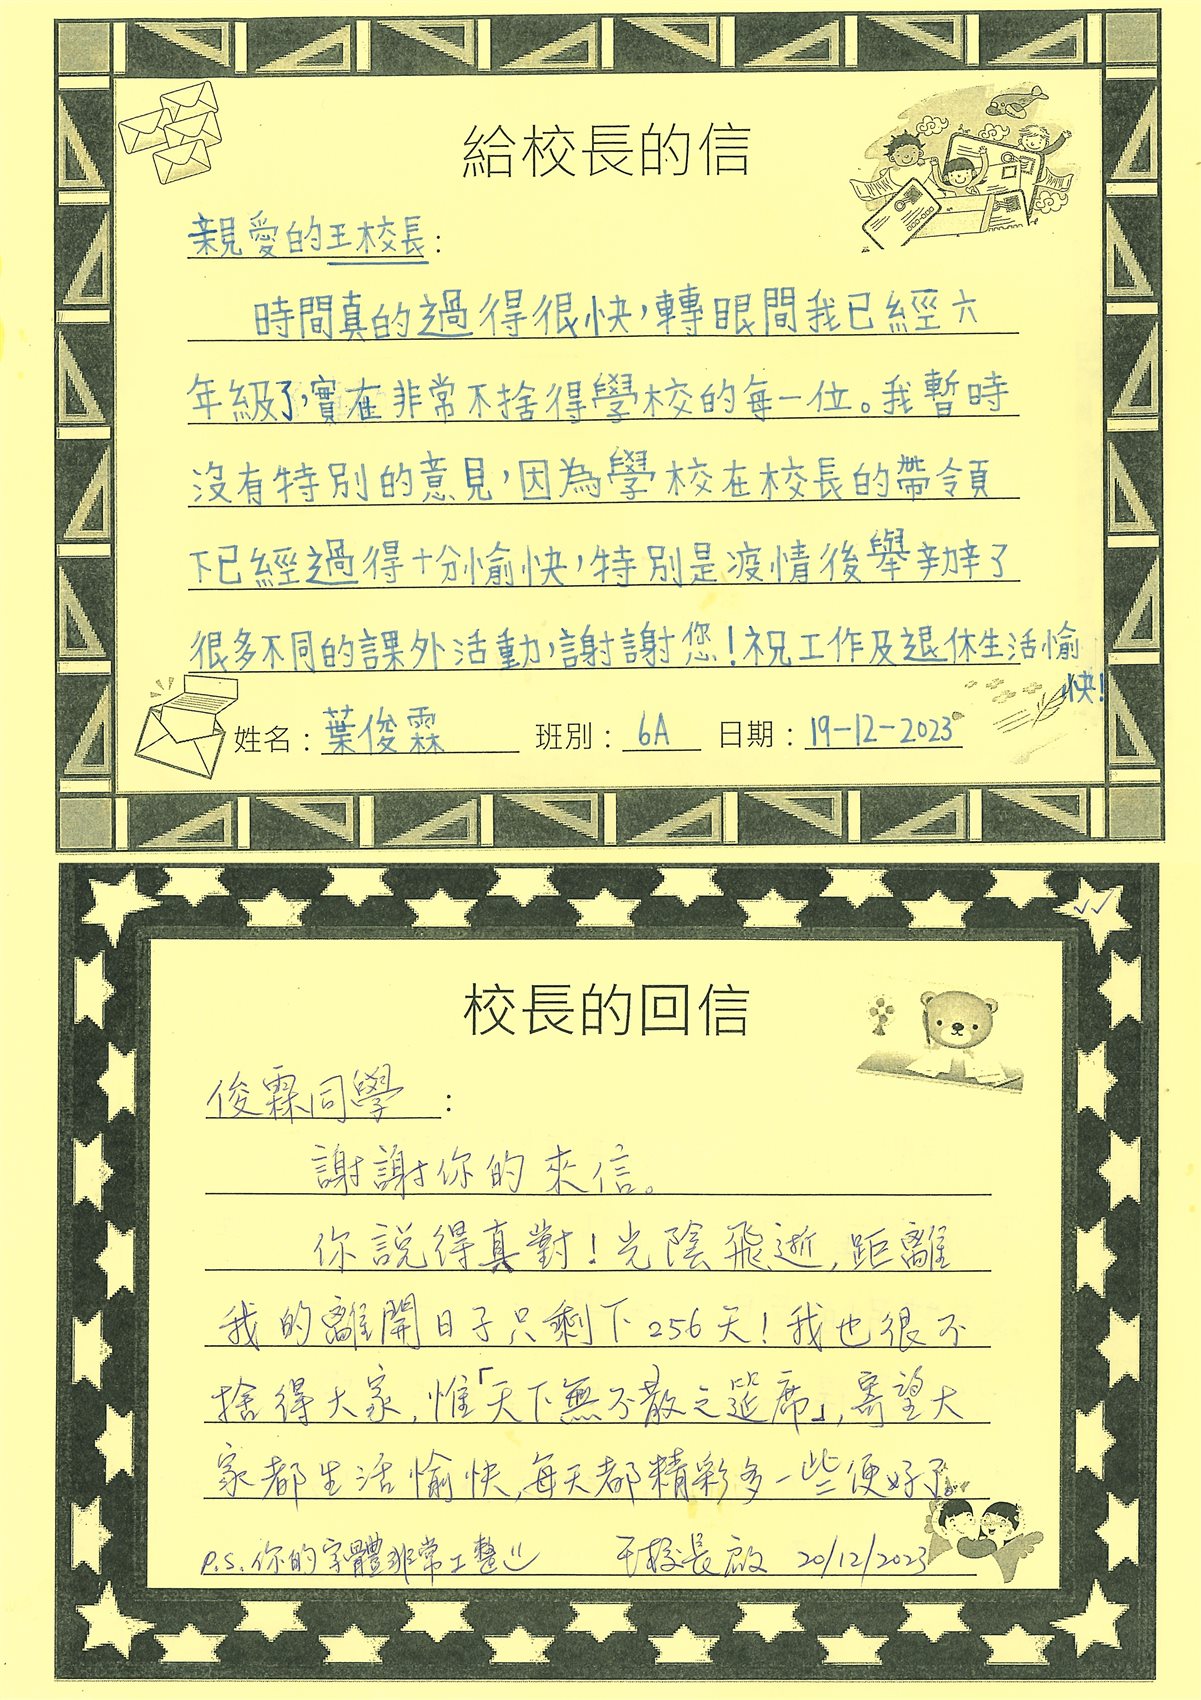 給校長的信
親愛的王校長：
時間真的過得很快，轉眼間我已經六
年級了，實在非常不捨得學校的每一位。我暫時
沒有特別的意見，因為學校在校長的帶領
下已經過得十分愉快，特別是疫情後舉辦了
很多不同的課外活動，謝謝您！祝工作及退休生活愉
快！
姓名：葉俊霖 班別：6A 日期：19-12-2023
校長的回信
俊霖同學：
謝謝你的來信。
你說得真對！光陰飛逝，距離
我的離開日子只剩下256天！我也很不
捨得大家，惟「天下無不散之筵席」，寄望大
家都生活愉快，每天都精彩多一些便好了
P.S. 你的字體非常工整！！ 王校長啟 20/12/2023